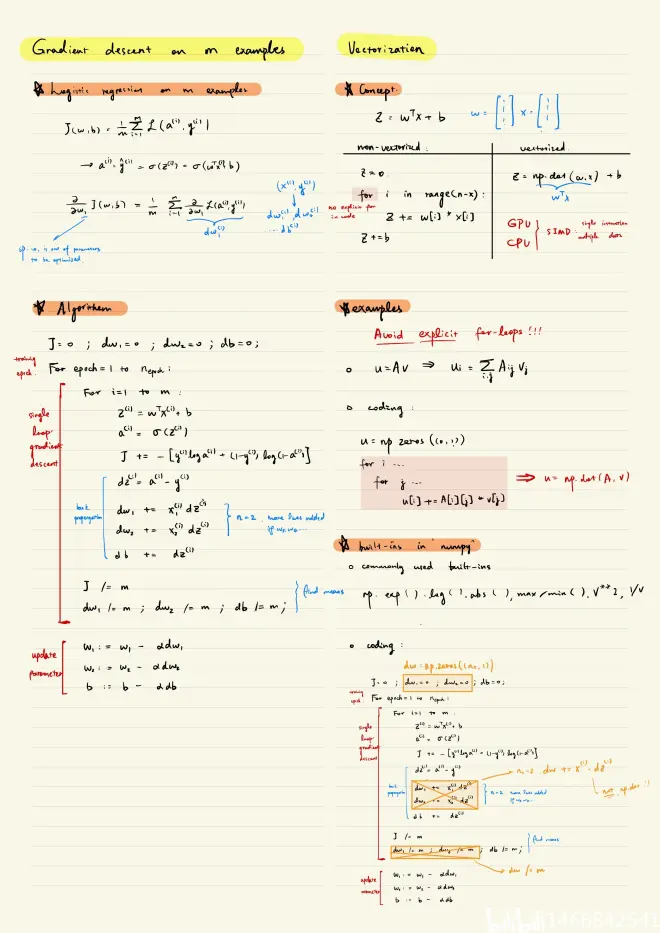 Gradient descent on m examples
☆ Logistic regression on m examples
J(w,b) = 1/m Σ_{i=1}^{m} L(a^(i), y^(i))
→ a^(i) = ŷ^(i) = σ(z^(i)) = σ(w^T x^(i) + b)
∂/∂w₁ J(w,b) = 1/m Σ_{i=1}^{m} ∂/∂w₁ L(a^(i), y^(i))
dw₁^(i)
(x^(i), y^(i))
dw₁^(i), dw₂^(i)
... db^(i)
w₁ is one of parameters
to be optimized
☆ Algorithm
J=0 ; dw₁=0 ; dw₂=0 ; db=0 ;
training epoch
For epoch=1 to n_epoch :
single loop gradient descent
For i=1 to m :
z^(i) = w^T x^(i) + b
a^(i) = σ(z^(i))
J += -[y^(i) log a^(i) + (1-y^(i)) log(1-a^(i))]
back propagation
dz^(i) = a^(i) - y^(i)
dw₁ += x₁^(i) dz^(i)
dw₂ += x₂^(i) dz^(i)
n=2, more lines added
if w₃, w₄...
db += dz^(i)
J /= m
dw₁ /= m ; dw₂ /= m ; db /= m ;
find means
update parameter
w₁ := w₁ - αdw₁
w₂ := w₂ - αdw₂
b := b - αdb
Vectorization
☆ Concept
z = w^T x + b
w = [⋮] x = [⋮]
non-vectorized :
z=0
for i in range(n-x):
z += w[i] * x[i]
z += b
no explicit for
in code
vectorized
z = np.dot(w,x) + b
w^T x
GPU
CPU
SIMD : single instruction
multiple data
☆ examples
Avoid explicit for-loops !!!
o u = Av ⇒ u_i = Σ_{i,j} A_ij v_j
o coding :
u = np zeros((n,1))
for i ...
for j ...
u[i] += A[i][j] * v[j]
⇒ u = np.dot(A, v)
☆ built-ins in "numpy"
o commonly used built-ins
np. exp( ). log( ). abs( ), max/min( ), V**2, 1/V
o coding :
dw = np.zeros((n_x,1))
J=0 ; dw₁=0 ; dw₂=0 ; db=0 ;
training epoch
For epoch=1 to n_epoch :
single loop gradient descent
For i=1 to m :
z^(i) = w^T x^(i) + b
a^(i) = σ(z^(i))
J += -[y^(i) log a^(i) + (1-y^(i)) log(1-a^(i))]
back propagation
dz^(i) = a^(i) - y^(i)
dw₁ += x₁^(i) dz^(i)
dw₂ += x₂^(i) dz^(i)
n=2, more lines added
db += dz^(i)
dw += x^(i) · dz^(i)
not np.dot !!
J /= m
dw₁ /= m ; dw₂ /= m ; db /= m ;
find means
dw /= m
update parameter
w₁ := w₁ - αdw₁
w₂ := w₂ - αdw₂
b := b - αdb